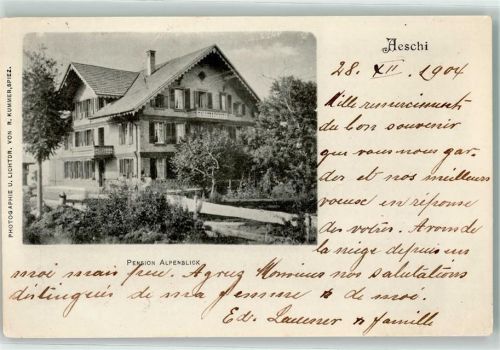 Aeschi
28. XII. 1904
Mille remerciements
du bon souvenir
que vous nous gar-
dez et nos meilleurs
voeuse en réponse
des votres. Avons de
la neige depuis un
moi mais peu. Agrez Monsieur nos salutations
distingués de ma femme & de moi.
Ed. & famille
PENSION ALPENBLICK
PHOTOGAPHIE U. LICHTDR. VON R. KUMMER, SPIEZ.